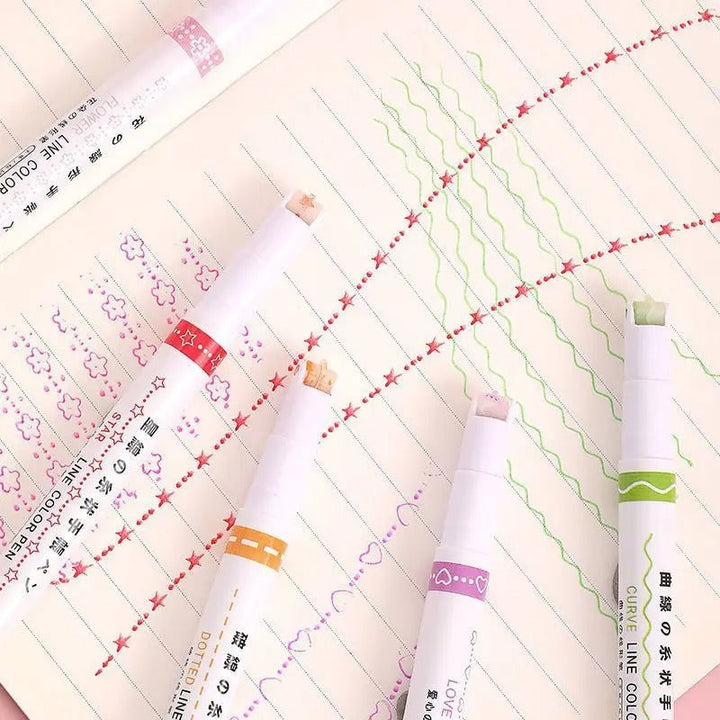 花の線形手帳ペ
FLOWER LINE COLOR
星線の糸状手帳ペン
STAR LINE COLOR PEN
破線の糸
DOTTED LINE
LOVE
愛心の
曲線の糸状手
CURVE LINE COLO